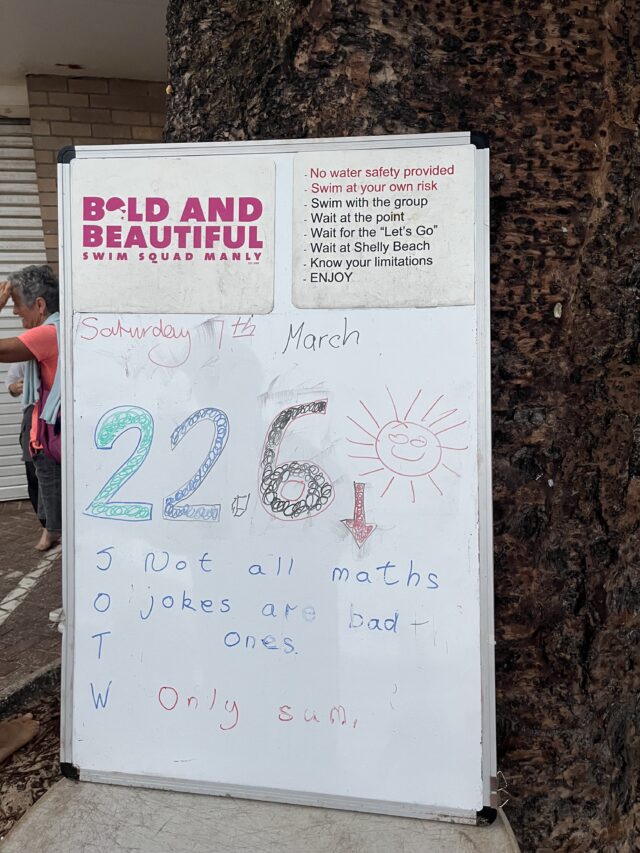 BOLD AND
BEAUTIFUL
SWIM SQUAD MANLY
- No water safety provided
- Swim at your own risk
- Swim with the group
- Wait at the point
- Wait for the "Let's Go"
- Wait at Shelly Beach
- Know your limitations
- ENJOY
Saturday 7th March
22.6
J Not all maths
O jokes are bad
T ones.
W Only sum.